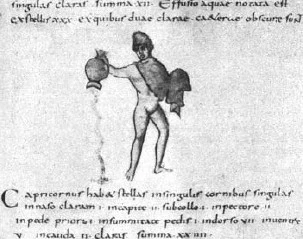 singulas claras summa xii. Effusio aquae notata est
ex stellis xxx ex quibus duae clarae. caeterae obscure sunt
Capricornus habet stellas in singulis cornibus singulas
in naso claram i. in capite ii. sub collo i. in pectore ii
in pede priori i. in summitate pedis i. in dorso vii in ventre
v in cauda ii claras summa xxiiii.